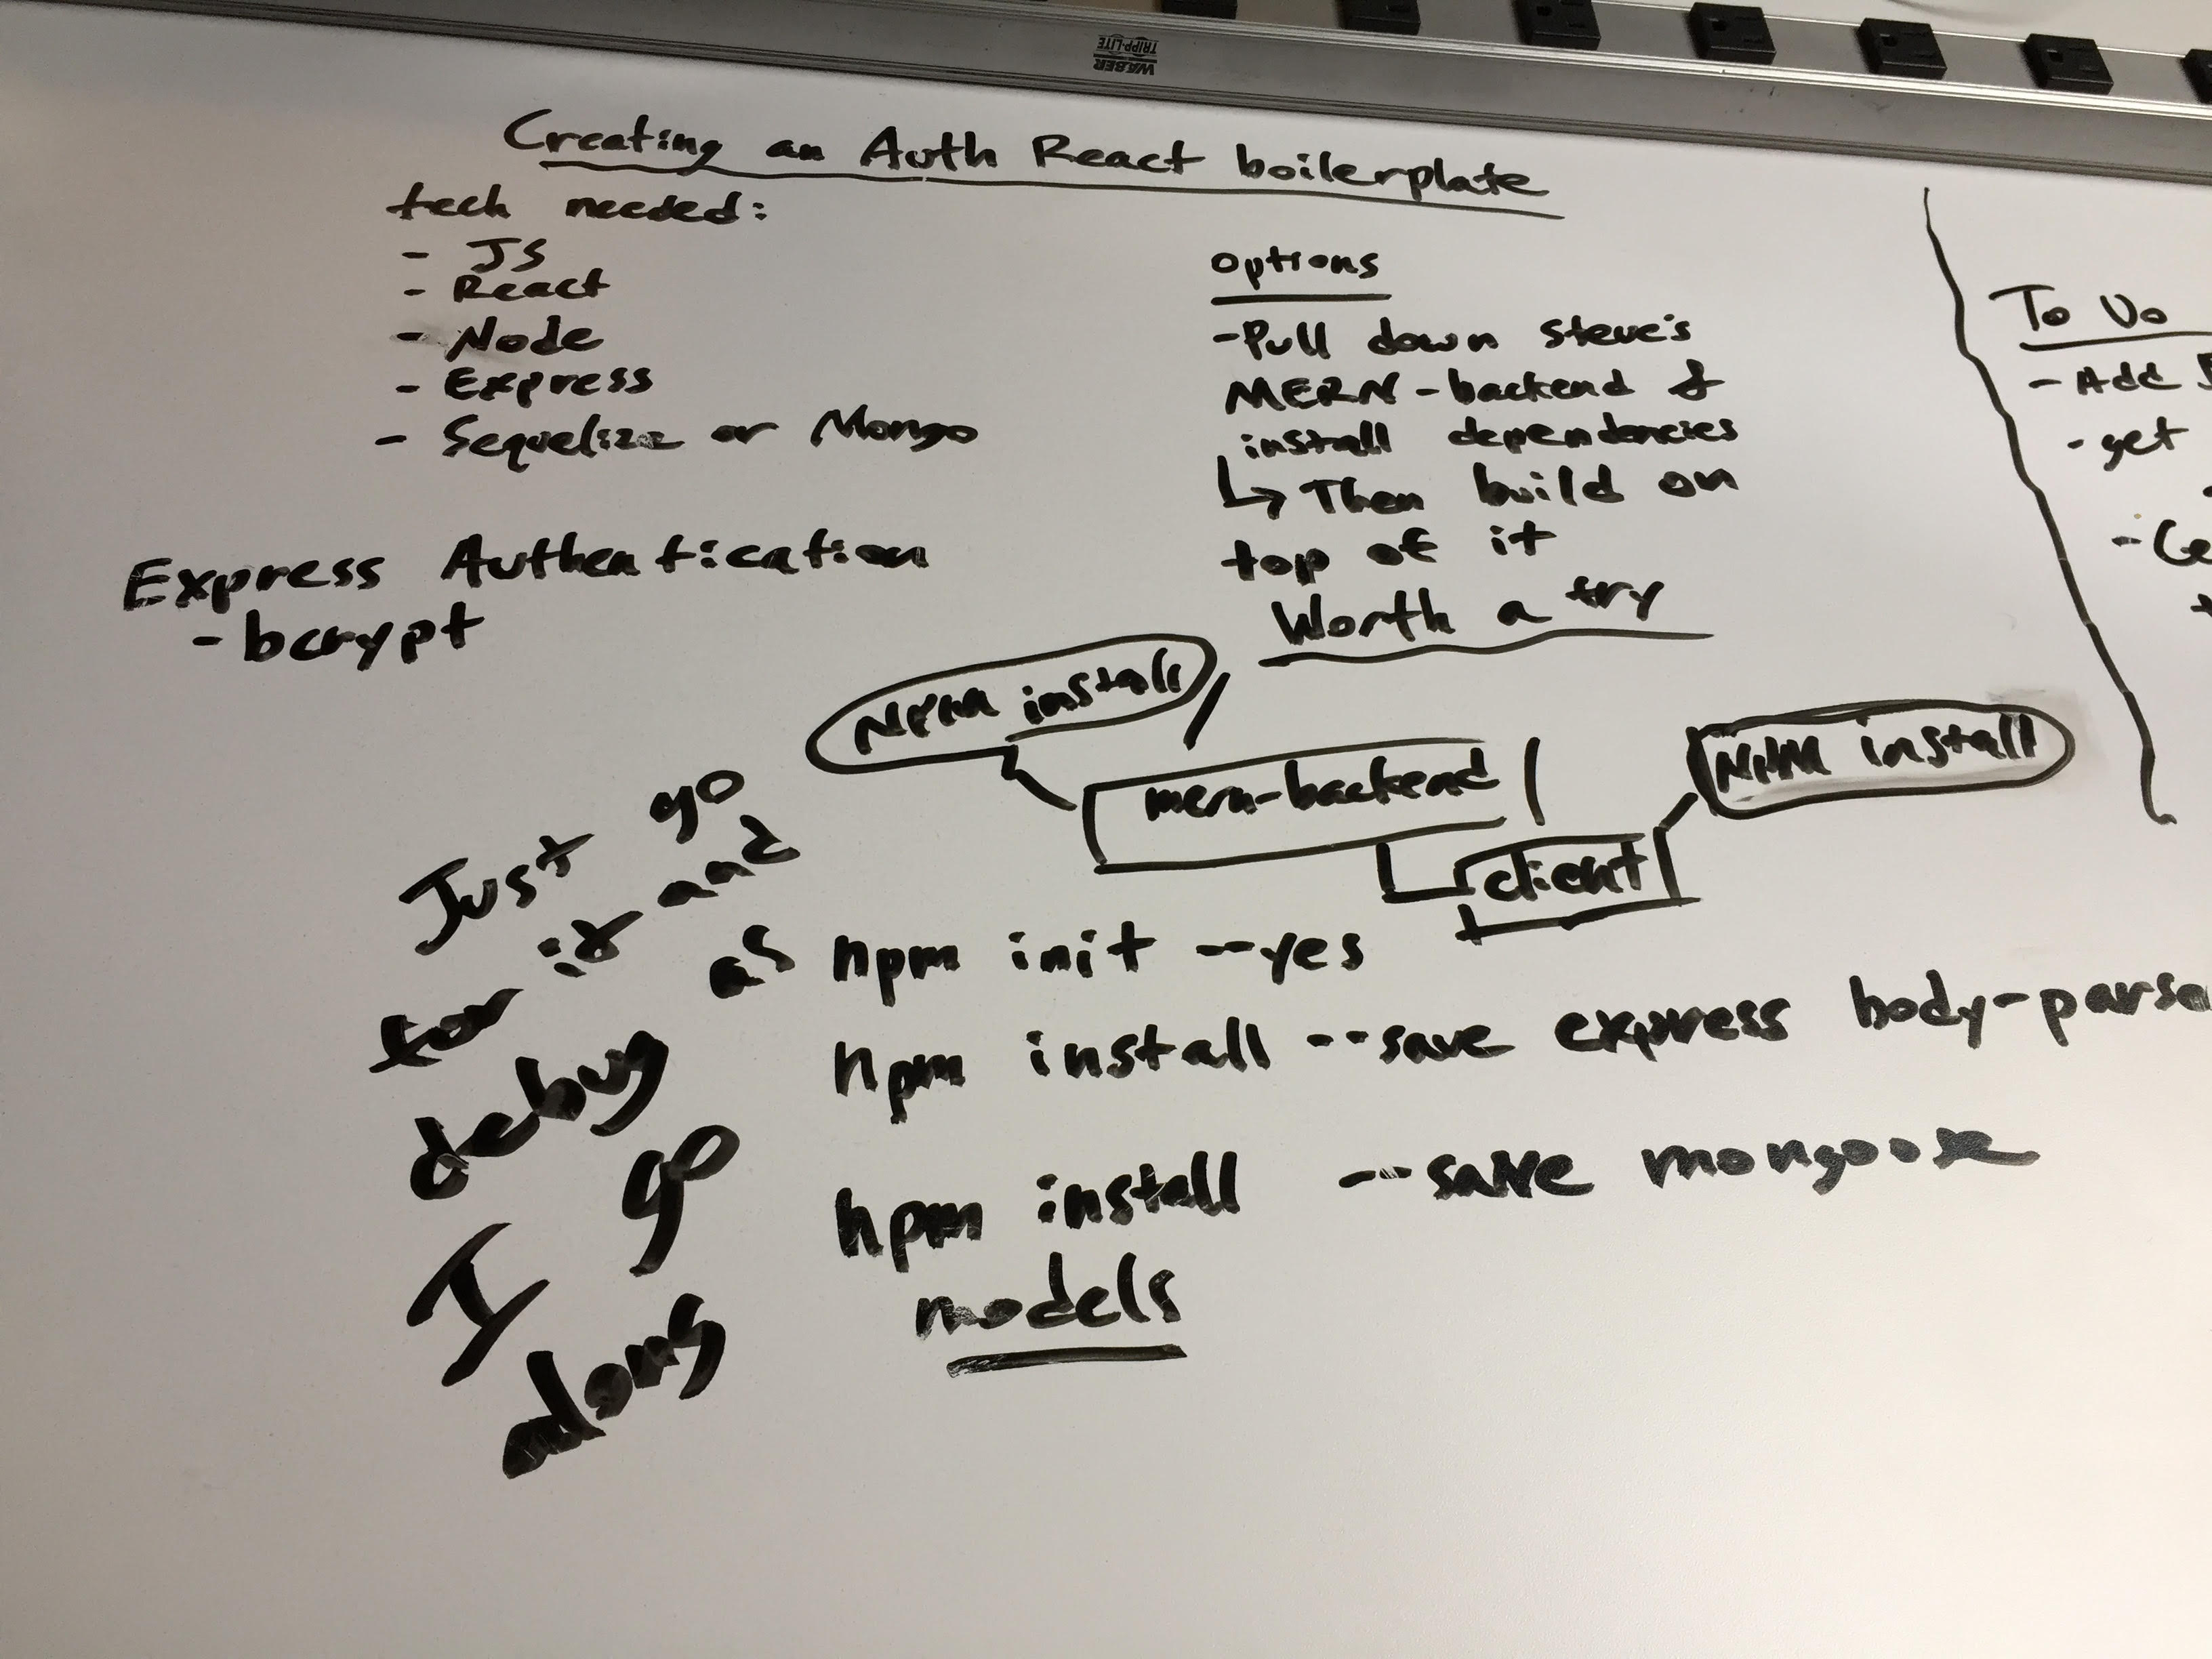 WABER
TRIPP-LITE
Creating an Auth React boilerplate
tech needed:
- JS
- React
- Node
- Express
- Sequelize or Mongo
Express Authentication
- bcrypt
options
- Pull down Steve's
MERN-backend &
install dependencies
↳ Then build on
top of it
Worth a try
NPM install
mern-backend
client
NPM install
Just go
for it and
debug as
I go
along
npm init --yes
npm install --save express body-parse
npm install --save mongoose
models
To Do
- Add
- get